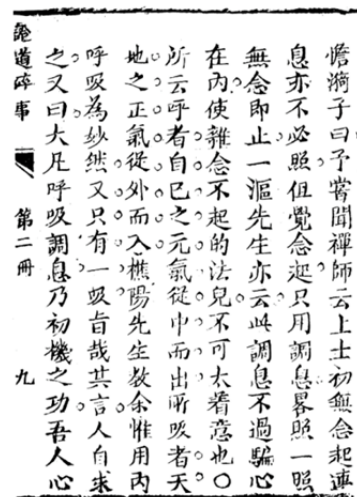 憺漪子曰予嘗聞禪師云上士初無念起連
息亦不必照但覺念起只用調息畧照一照
無念即止一漚先生亦云此調息不過騙心
在內使雜念不起的法兒不可太着意也〇
所云呼者自巳之元氣從中而出所吸者天
地之正氣從外而入樵陽先生教余惟用內
呼吸為妙然又只有一吸旨哉其言人自求
之又曰大凡呼吸調息乃初機之功吾人心
道碎事 第二冊 九